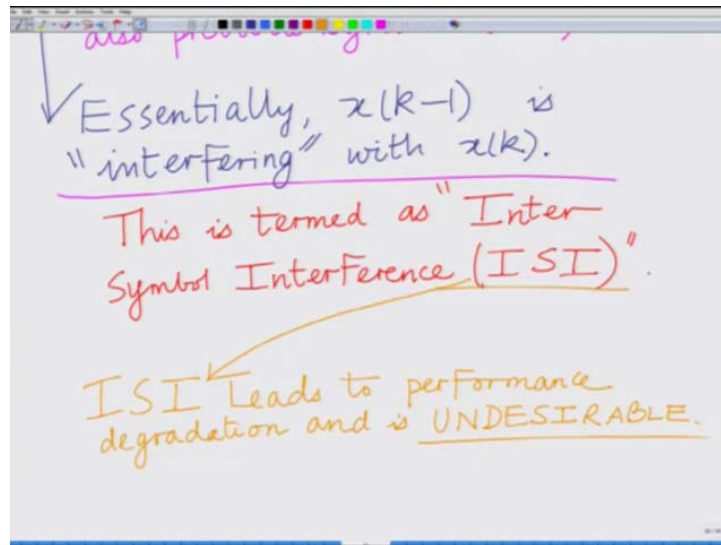 also
Essentially, x(k-1) is
"interfering" with x(k).
This is termed as "Inter
Symbol Interference (ISI)".
ISI Leads to performance
degradation and is UNDESIRABLE.